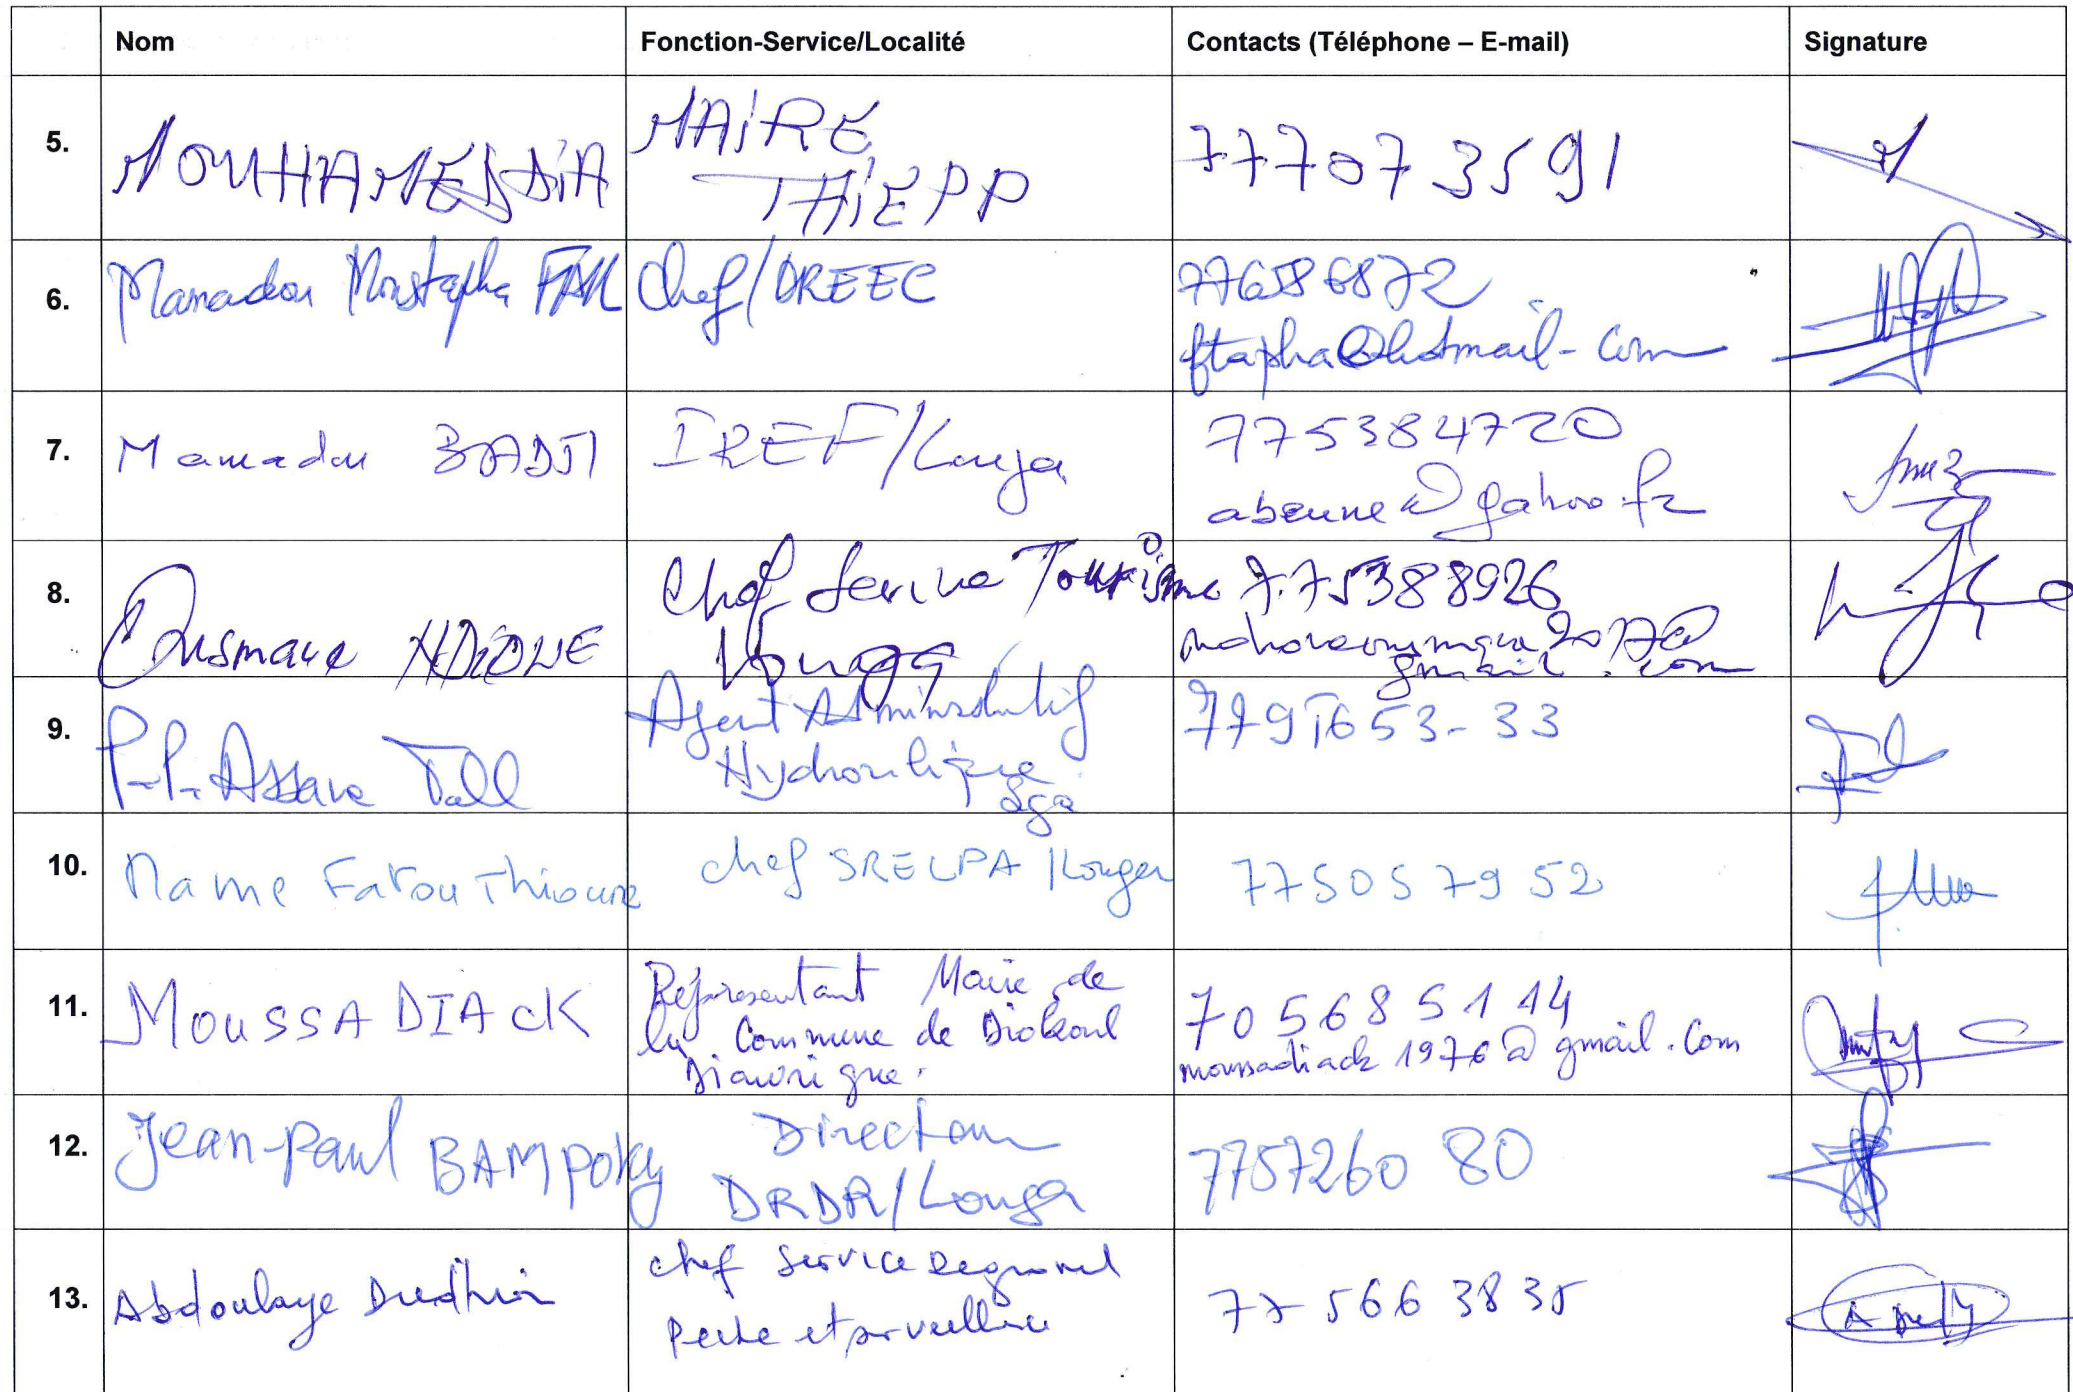 Nom Fonction-Service/Localité Contacts (Téléphone – E-mail) Signature
5. MOUHAMED DIA MAIRE THIEPP 77707 3591
6. Mamadou Moustapha FALL Chef/DREEC 776586872
ftapha@hotmail-com
7. Mamadou BADJI IREF/Louga 775384720
abeune@yahoo.fr
8. Ousmane NDIONE Chef Service Tourisme Louga 775388926
2017@
gmail.com
9. P.P. Assane Tall Agent Administratif
Hydraulique
Lga
10. Name Fatou Thioune chef SRELPA/Louga 775057952
11. MOUSSA DIACK Réprésentant Maire de
la Commune de Diokoul
Diawrigne.
705685114
moussadiack1976@gmail.com
12. Jean-Paul BAMPOKY Directeur
DRDR/Louga
7757260 80
13. Abdoulaye chef Service Regional
Peche et surveillance
77 566 3835